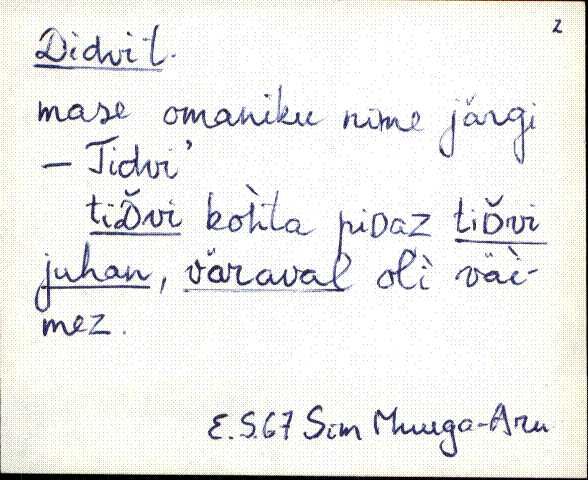 2
Didvit.
mase omaniku nime järgi
— Tidvi'
tiD̆vi koh̀ta piDaz tiD̆vi
juhan, väraval oli väi-
mez.
E.S.67 Sim Muuga-Aru